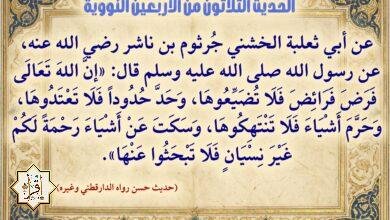 الحديث الثلاثون من الأربعين النووية
عن أبي ثعلبة الخشني جُرثوم بن ناشر رضي الله عنه،
عن رسول الله صلى الله عليه وسلم قال: «إنَّ اللهَ تَعَالَى
فَرَضَ فَرَائِضَ فَلَا تُضَيِّعُوهَا، وَحَدَّ حُدُوداً فَلَا تَعْتَدُوهَا،
وَحَرَّمَ أَشْيَاءَ فَلَا تَنْتَهِكُوهَا، وَسَكَتَ عَنْ أَشْيَاءَ رَحْمَةً لَكُمْ
غَيْرَ نِسْيَانٍ فَلَا تَبْحَثُوا عَنْهَا».
(حديث حسن رواه الدارقطني وغيره)